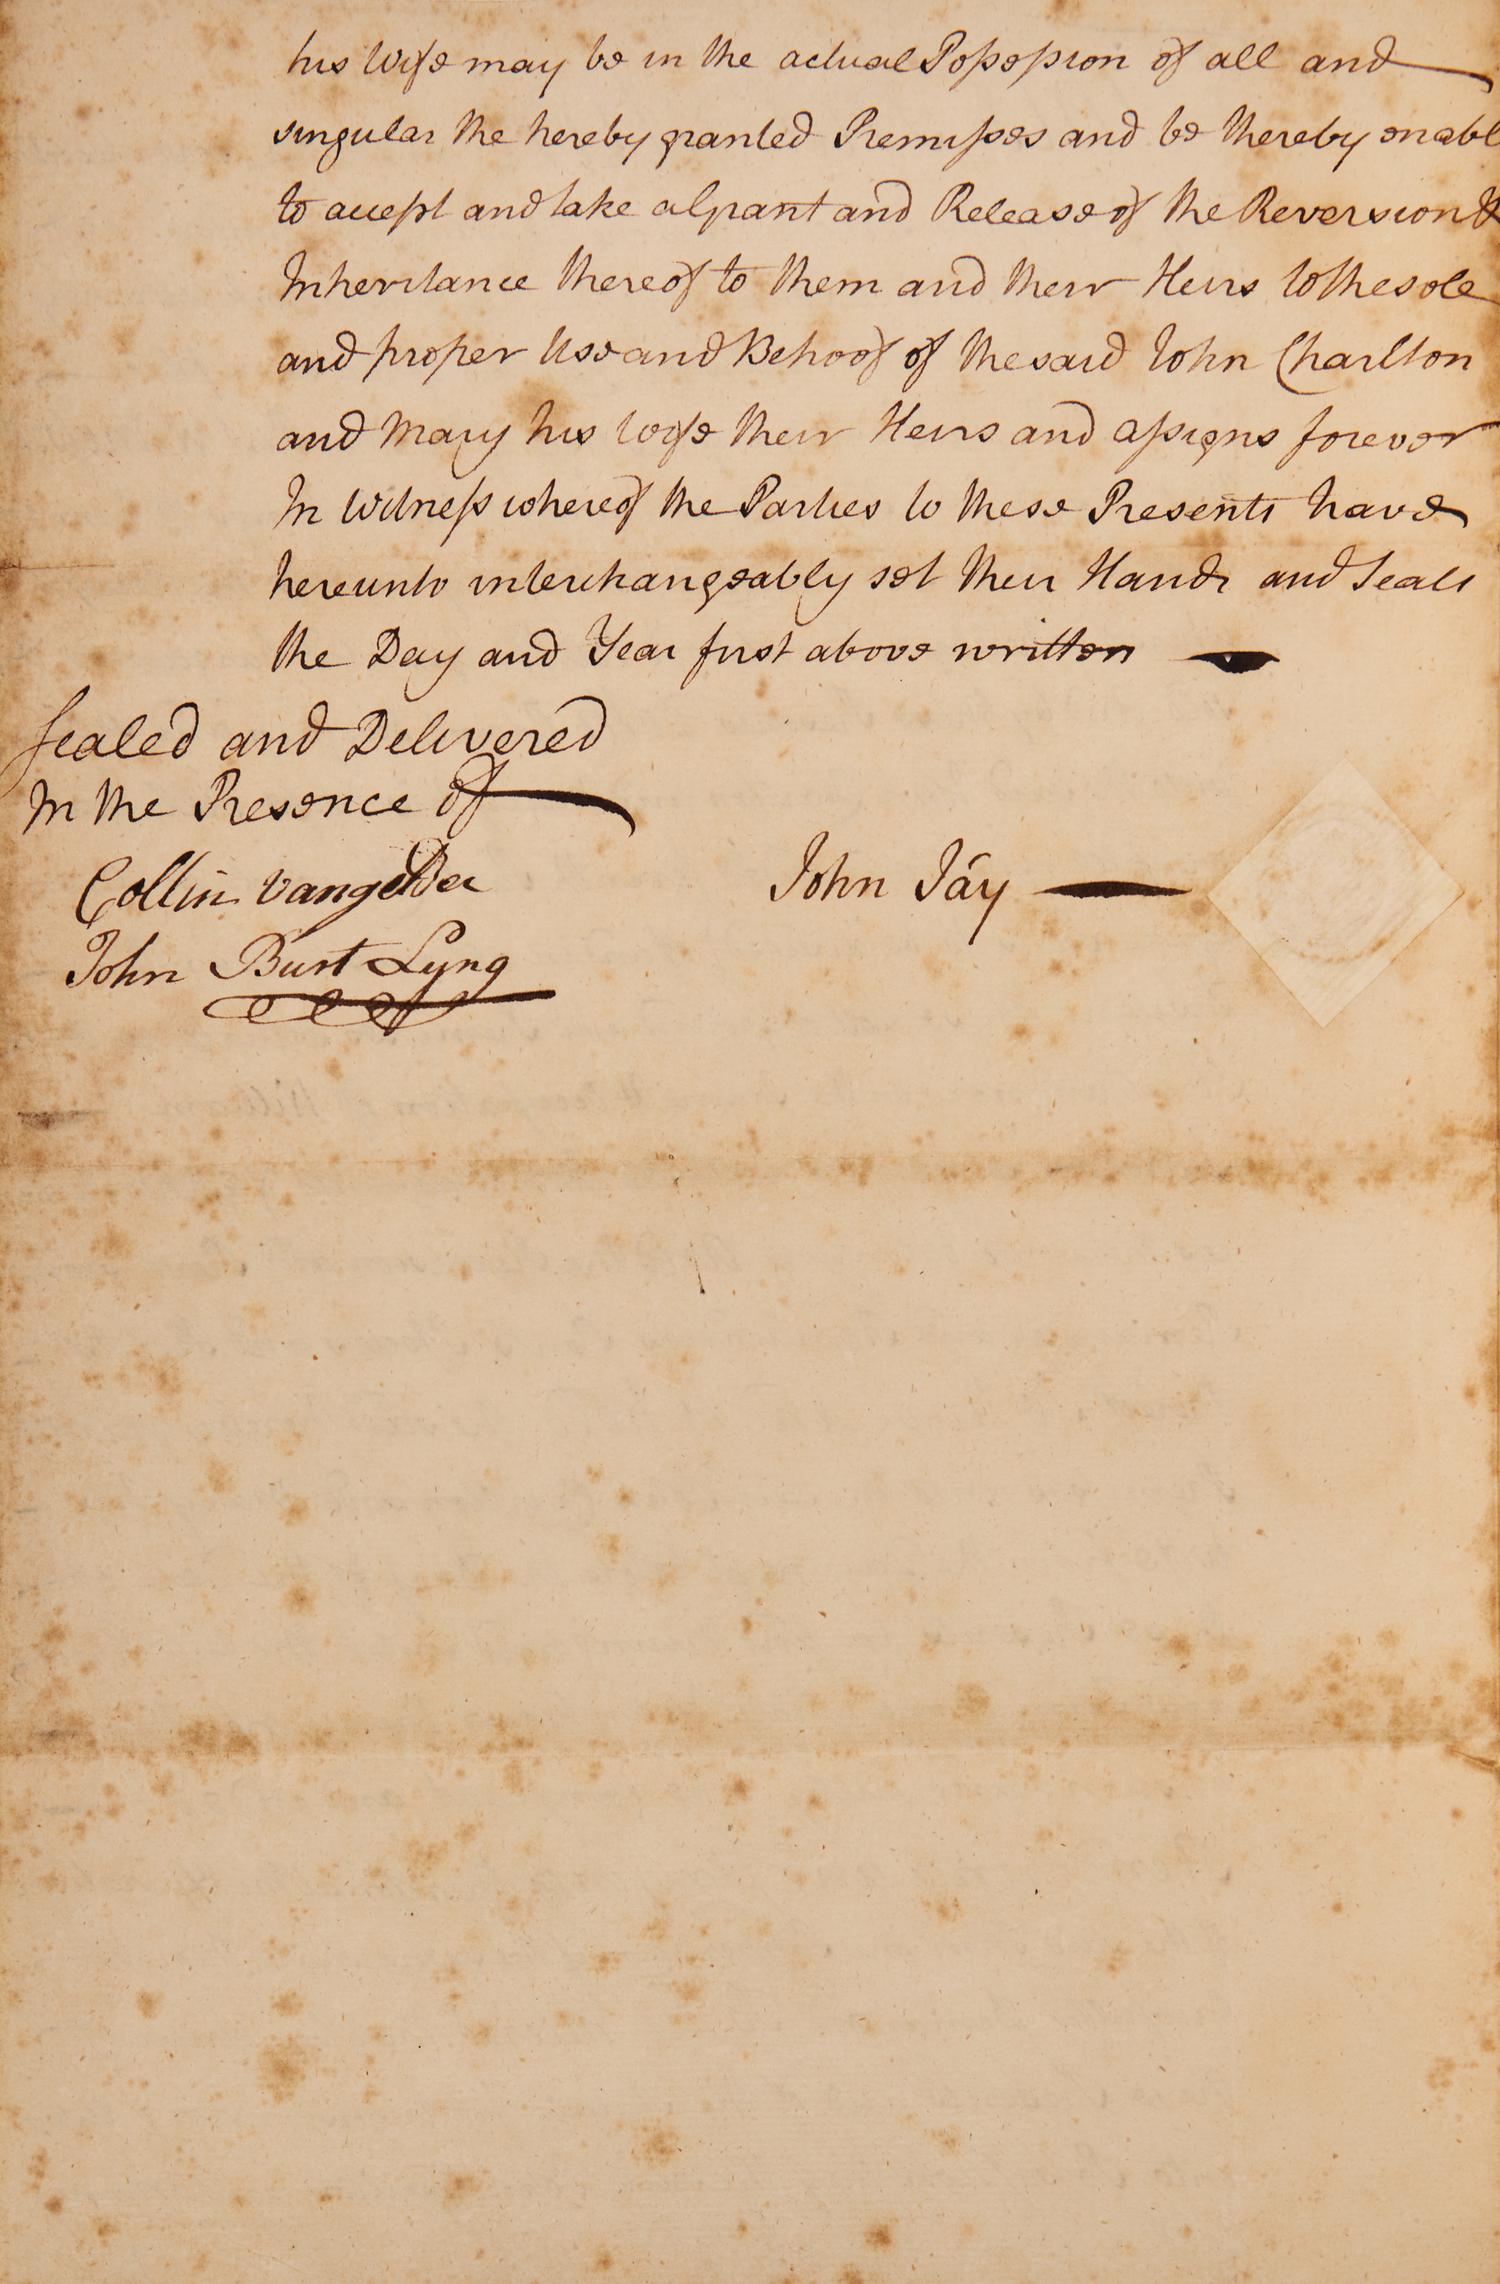 his Wife may be in the actual Possession of all and
singular the hereby granted Premisses and be thereby enabl
to accept and take a grant and Release of the Reversion &
Inheritance thereof to them and their Heirs to the sole
and proper Use and Behoof of the said John Charlton
and Mary his wife their Heirs and assigns forever
In Witness whereof the Parties to these Presents have
hereunto interchangeably set their Hands and Seals
the Day and Year first above written
Sealed and Delivered
In the Presence of
Collin Vangelder
John Jay
John Burt Lyng